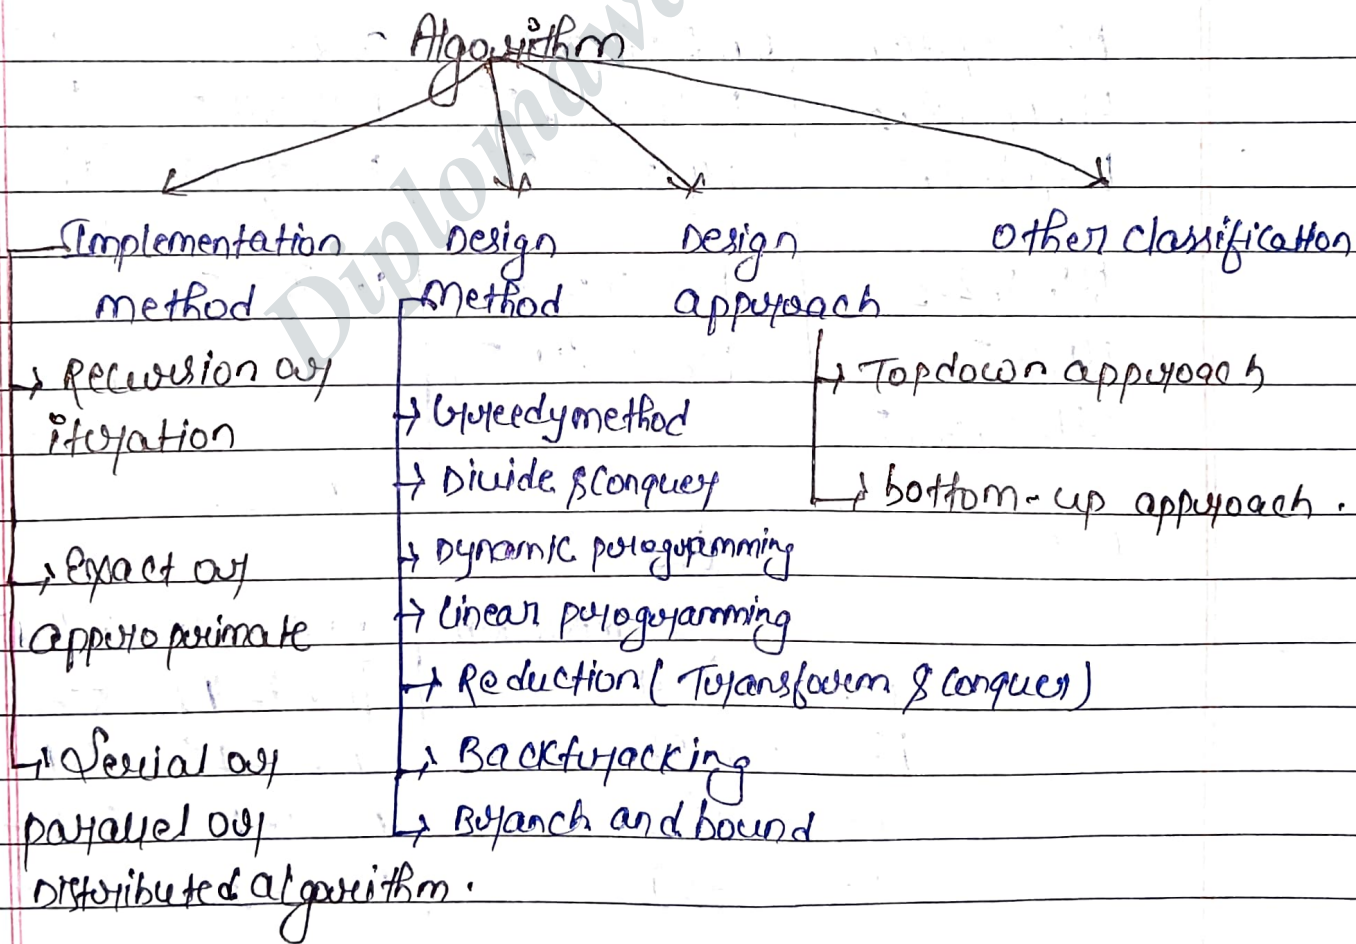 Algorithm
Implementation
method
→ Recursion or
iteration
→ Exact or
approperimate
→ Serial or
parallel or
Distributed algorithm.
Design
method
→ Greedy method
→ Divide & Conquer
→ Dynamic programming
→ Linear programming
→ Reduction (Transform & conquer)
→ Backtracking
→ Branch and bound
Design
approach
→ Topdown approach
→ bottom-up approach.
Other classification